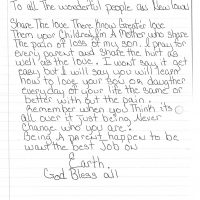 To all The wonderful people as New
Share The love There know Greater love
Them your Children, I'm A Mother who share
The pain of loss of my son. I pray for
every parent and share the hurt as
well as the love. I wont say it get
easy but I will say you will learn
how to love your son or daughter
everyday of your life the same or
better with out the pain.
Remember when you think its
all over it just being Never
Change who you are.
Being A parent happen to be
want the best Job on
Earth.
God Bless all